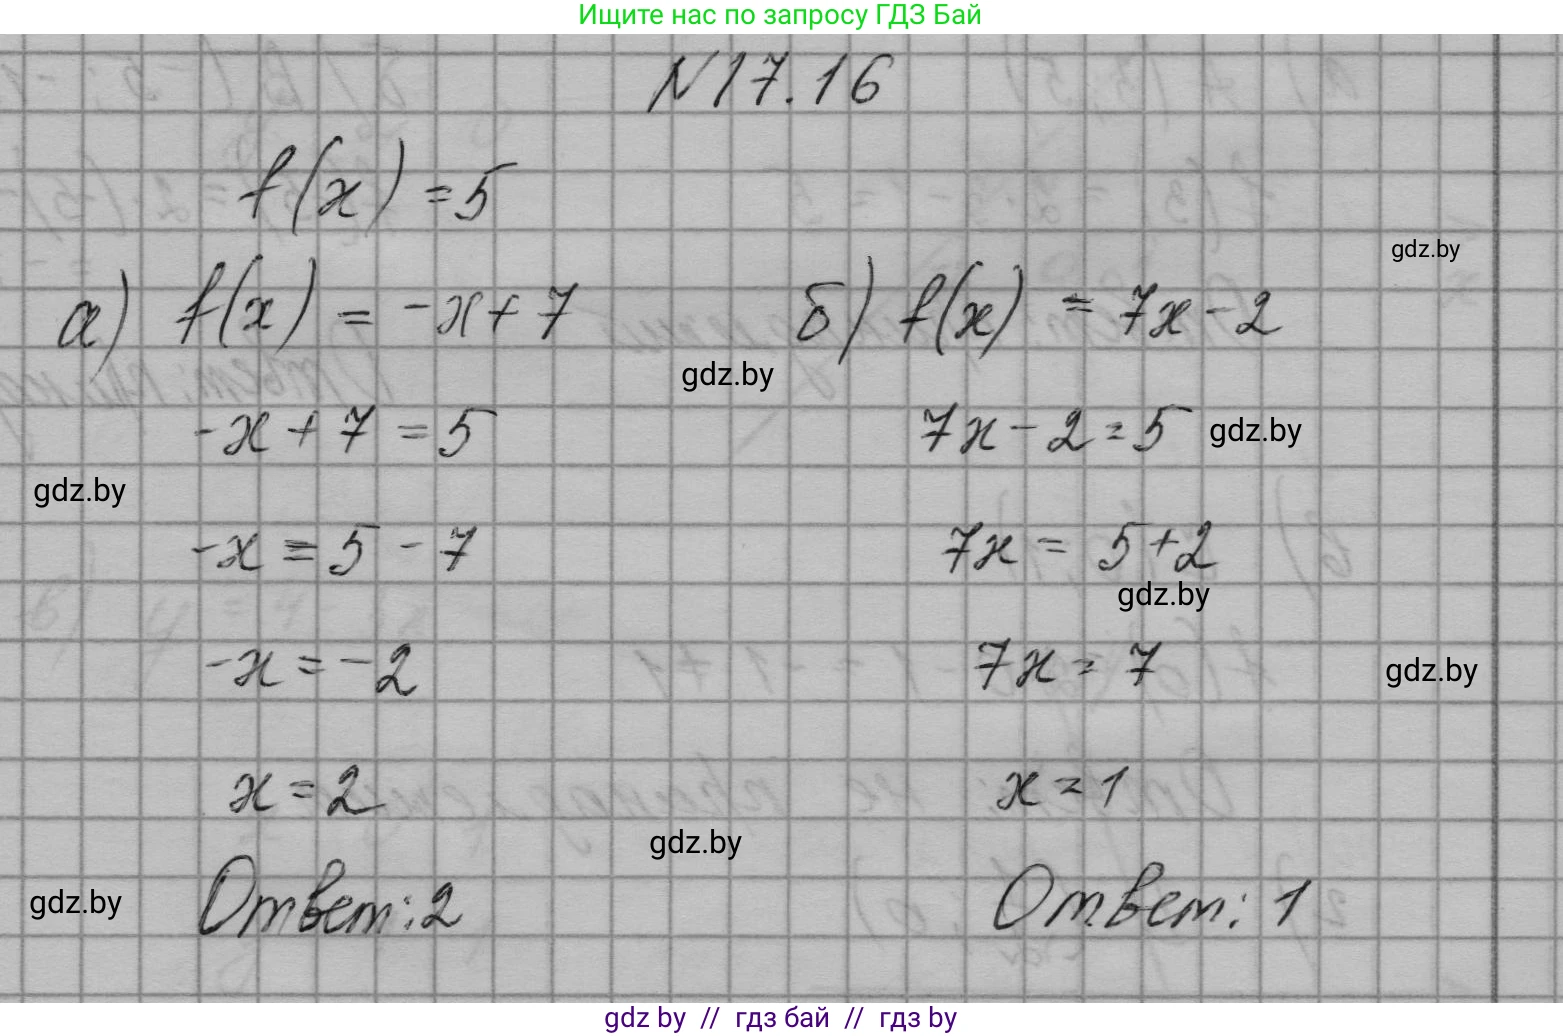 Ищите нас по запросу ГДЗ Бай
N17.16
f(x) = 5
gdz.by
а) f(x) = -x + 7
б) f(x) = 7x - 2
gdz.by
-x + 7 = 5
7x - 2 = 5
gdz.by
gdz.by
-x = 5 - 7
7x = 5 + 2
gdz.by
-x = -2
7x = 7
gdz.by
x = 2
x = 1
gdz.by
gdz.by
Ответ: 2
Ответ: 1
gdz by // гдз бай // гдз by